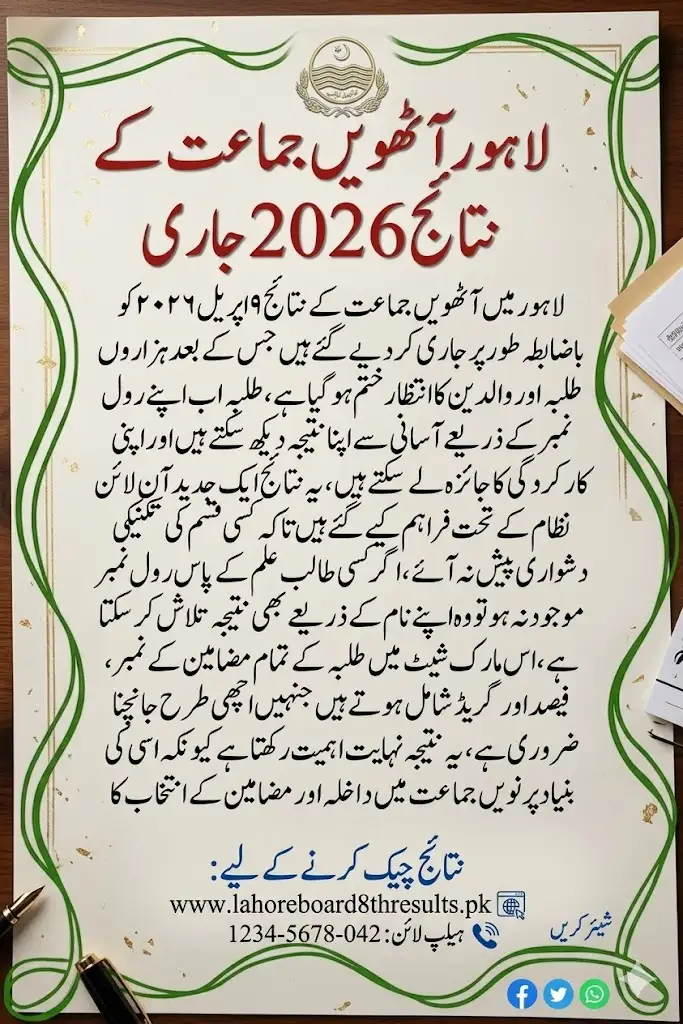 لاہور آٹھویں جماعت کے
نتائج 2026 جاری
لاہور میں آٹھویں جماعت کے نتائج ۹ اپریل ۲۰۲۶ کو
باضابطہ طور پر جاری کر دیے گئے ہیں جس کے بعد ہزاروں
طلبہ اور والدین کا انتظار ختم ہو گیا ہے، طلبہ اب اپنے رول
نمبر کے ذریعے آسانی سے اپنا نتیجہ دیکھ سکتے ہیں اور اپنی
کارکردگی کا جائزہ لے سکتے ہیں، یہ نتائج ایک جدید آن لائن
نظام کے تحت فراہم کیے گئے ہیں تاکہ کسی قسم کی تکنیکی
دشواری پیش نہ آئے، اگر کسی طالب علم کے پاس رول نمبر
موجود نہ ہو تو وہ اپنے نام کے ذریعے بھی نتیجہ تلاش کر سکتا
ہے، اس مارک شیٹ میں طلبہ کے تمام مضامین کے نمبر،
فیصد اور گریڈ شامل ہوتے ہیں جنہیں اچھی طرح جانچنا
ضروری ہے، یہ نتیجہ نہایت اہمیت رکھتا ہے کیونکہ اسی کی
بنیاد پر نویں جماعت میں داخلہ اور مضامین کے انتخاب کا
نتائج چیک کرنے کے لیے:
www.lahoreboard8thresults.pk
ہیلپ لائن: 042-5678-1234
شیئر کریں